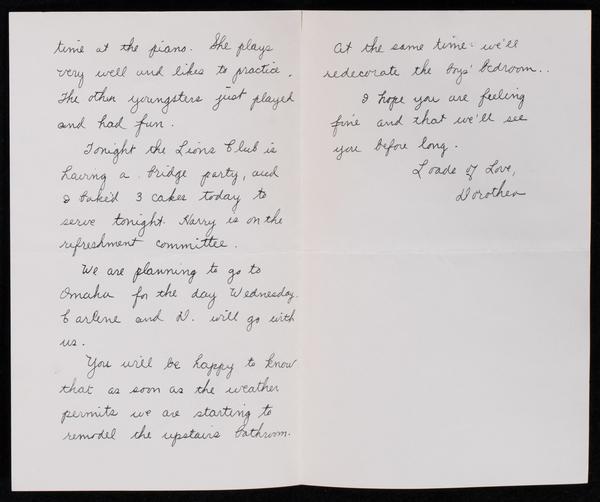 time at the piano. She plays
very well and likes to practice.
The other youngsters just played
and had fun.
Tonight the Lions Club is
having a bridge party, and
I baked 3 cakes today to
serve tonight. Harry is on the
refreshment committee.
We are planning to go to
Omaha for the day Wednesday.
Earlene and D. will go with
us.
You will be happy to know
that as soon as the weather
permits we are starting to
remodel the upstairs bathroom.
At the same time we'll
redecorate the boys' bedroom..
I hope you are feeling
fine and that we'll see
you before long.
Loads of Love,
Dorothea